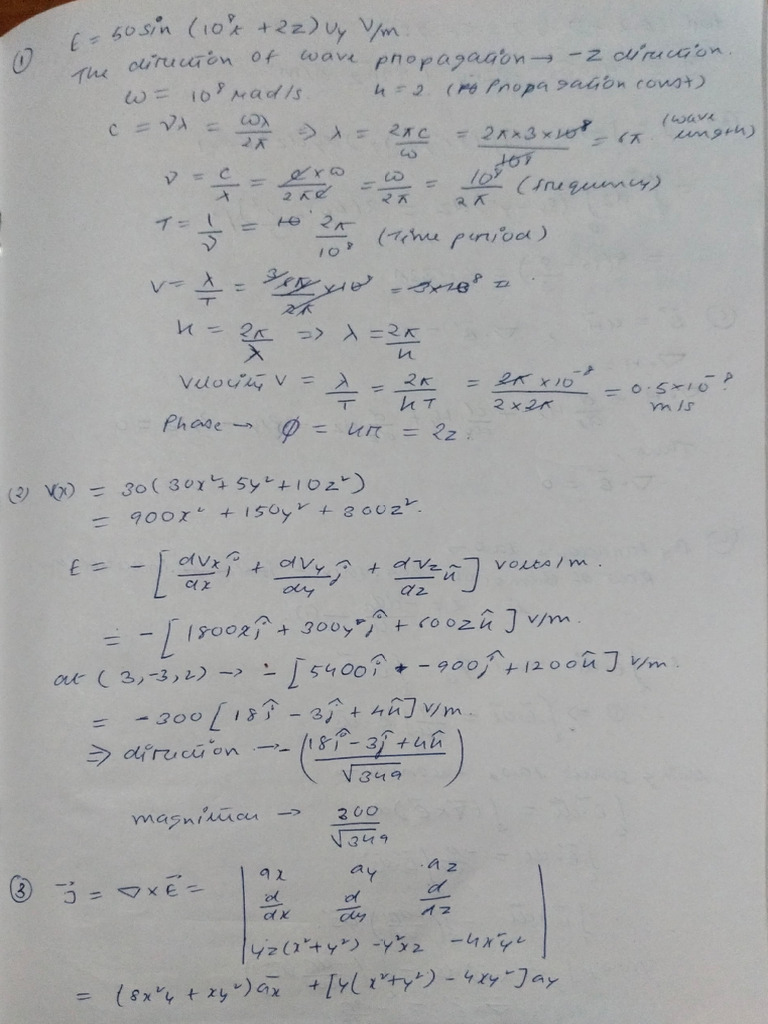 ① E = 50 sin (10⁸t + 2z) uy V/m.
The direction of wave propagation → -z direction.
ω = 10⁸ rad/s. k = 2 (Propagation const)
c = νλ = ωλ/2π ⇒ λ = 2πc/ω = 2π×3×10⁸/10⁸ = 6π (wave length)
ν = c/λ = c×ω/2πc = ω/2π = 10⁸/2π (frequency)
T = 1/ν = 2π/10⁸ (Time period)
V = λ/T = =
k = 2π/λ ⇒ λ = 2π/k
Velocity V = λ/T = 2π/kT = 2π×10⁻⁸/2×2π = 0.5×10⁻⁸ m/s
Phase → φ = kr = 2z.
(2) V(x) = 30(30x²+5y²+10z²)
= 900x² + 150y² + 300z².
E = -[dVx/dx î + dVy/dy ĵ + dVz/dz k̂] volts/m.
= -[1800xî + 300yĵ + 600zk̂] V/m.
at (3,-3,2) → -[5400î -900ĵ +1200k̂] V/m.
= -300[18î - 3ĵ + 4k̂] V/m.
⇒ direction → -(18î-3ĵ+4k̂/√349)
→ 300/√349
③ J⃗ = ∇×E⃗ = | ax ay az
d/dx d/dy d/dz
4z(x²+y²) -y²xz -4x²y² |
= (8x²y + xy²)āx + [4(x²+y²) - 4xy²]ay